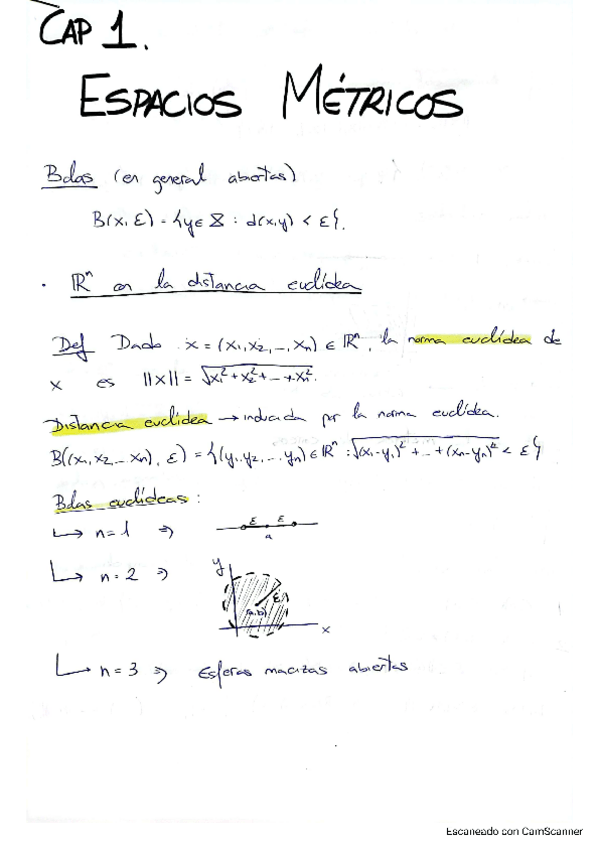 CAP 1.
ESPACIOS MÉTRICOS
Bolas (en general abiertas)
B(x, ε) = {y ∈ X : d(x,y) < ε}.
· ℝⁿ con la distancia euclídea
Def Dado x = (x₁, x₂, ..., xₙ) ∈ ℝⁿ, la norma euclídea de
x es ||x|| = √(x₁² + x₂² + ... + xₙ²).
Distancia euclídea → inducida por la norma euclídea.
B((x₁, x₂, ... xₙ), ε) = {(y₁, y₂, ... yₙ) ∈ ℝⁿ : √((x₁-y₁)² + ... + (xₙ-yₙ)²) < ε}
Bolas euclídeas :
↳ n = 1 ⇒
ε ε
a
↳ n = 2 ⇒
y
ε
(a,b)
x
↳ n = 3 ⇒ Esferas macizas abiertas
Escaneado con CamScanner